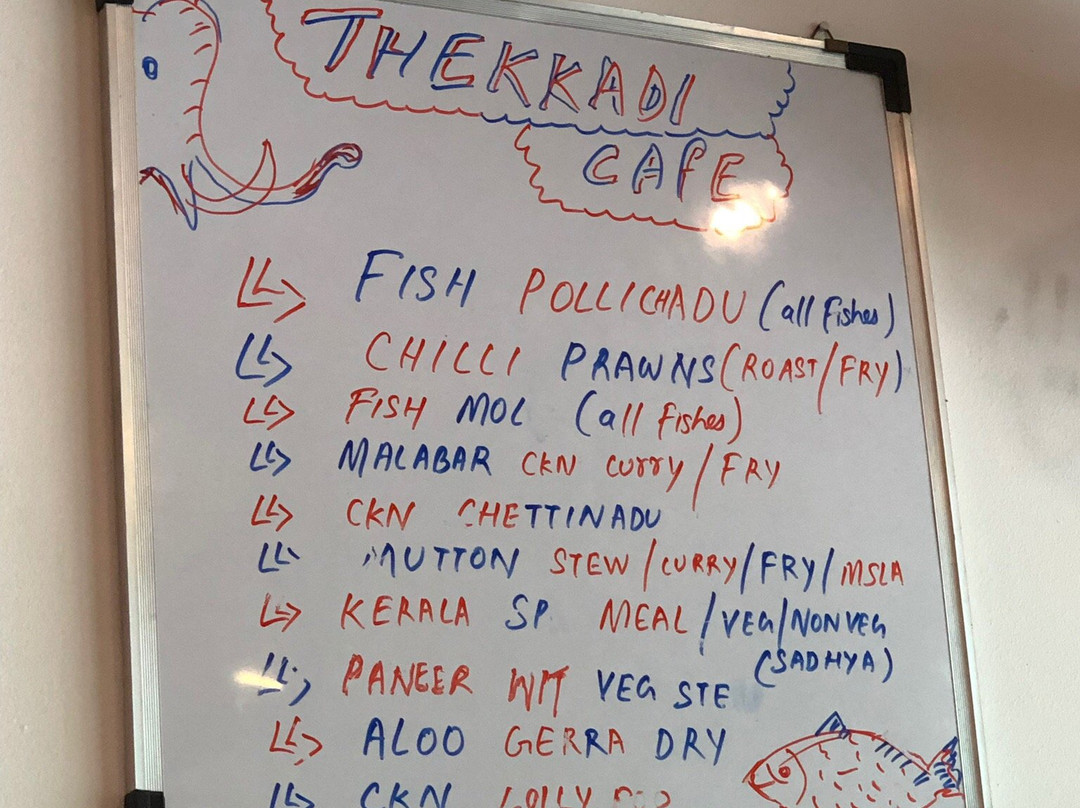 THEKKADI
CAFE
FISH POLLICHADU (all fishes)
CHILLI PRAWNS (ROAST/FRY)
FISH MOL (all fishes)
MALABAR CKN CURRY / FRY
CKN CHETTINADU
MUTTON STEW / CURRY / FRY / MSLA
KERALA SP. MEAL / VEG / NONVEG
(SADHYA)
PANEER WIT VEG STE
ALOO GERRA DRY
CKN LOLLY